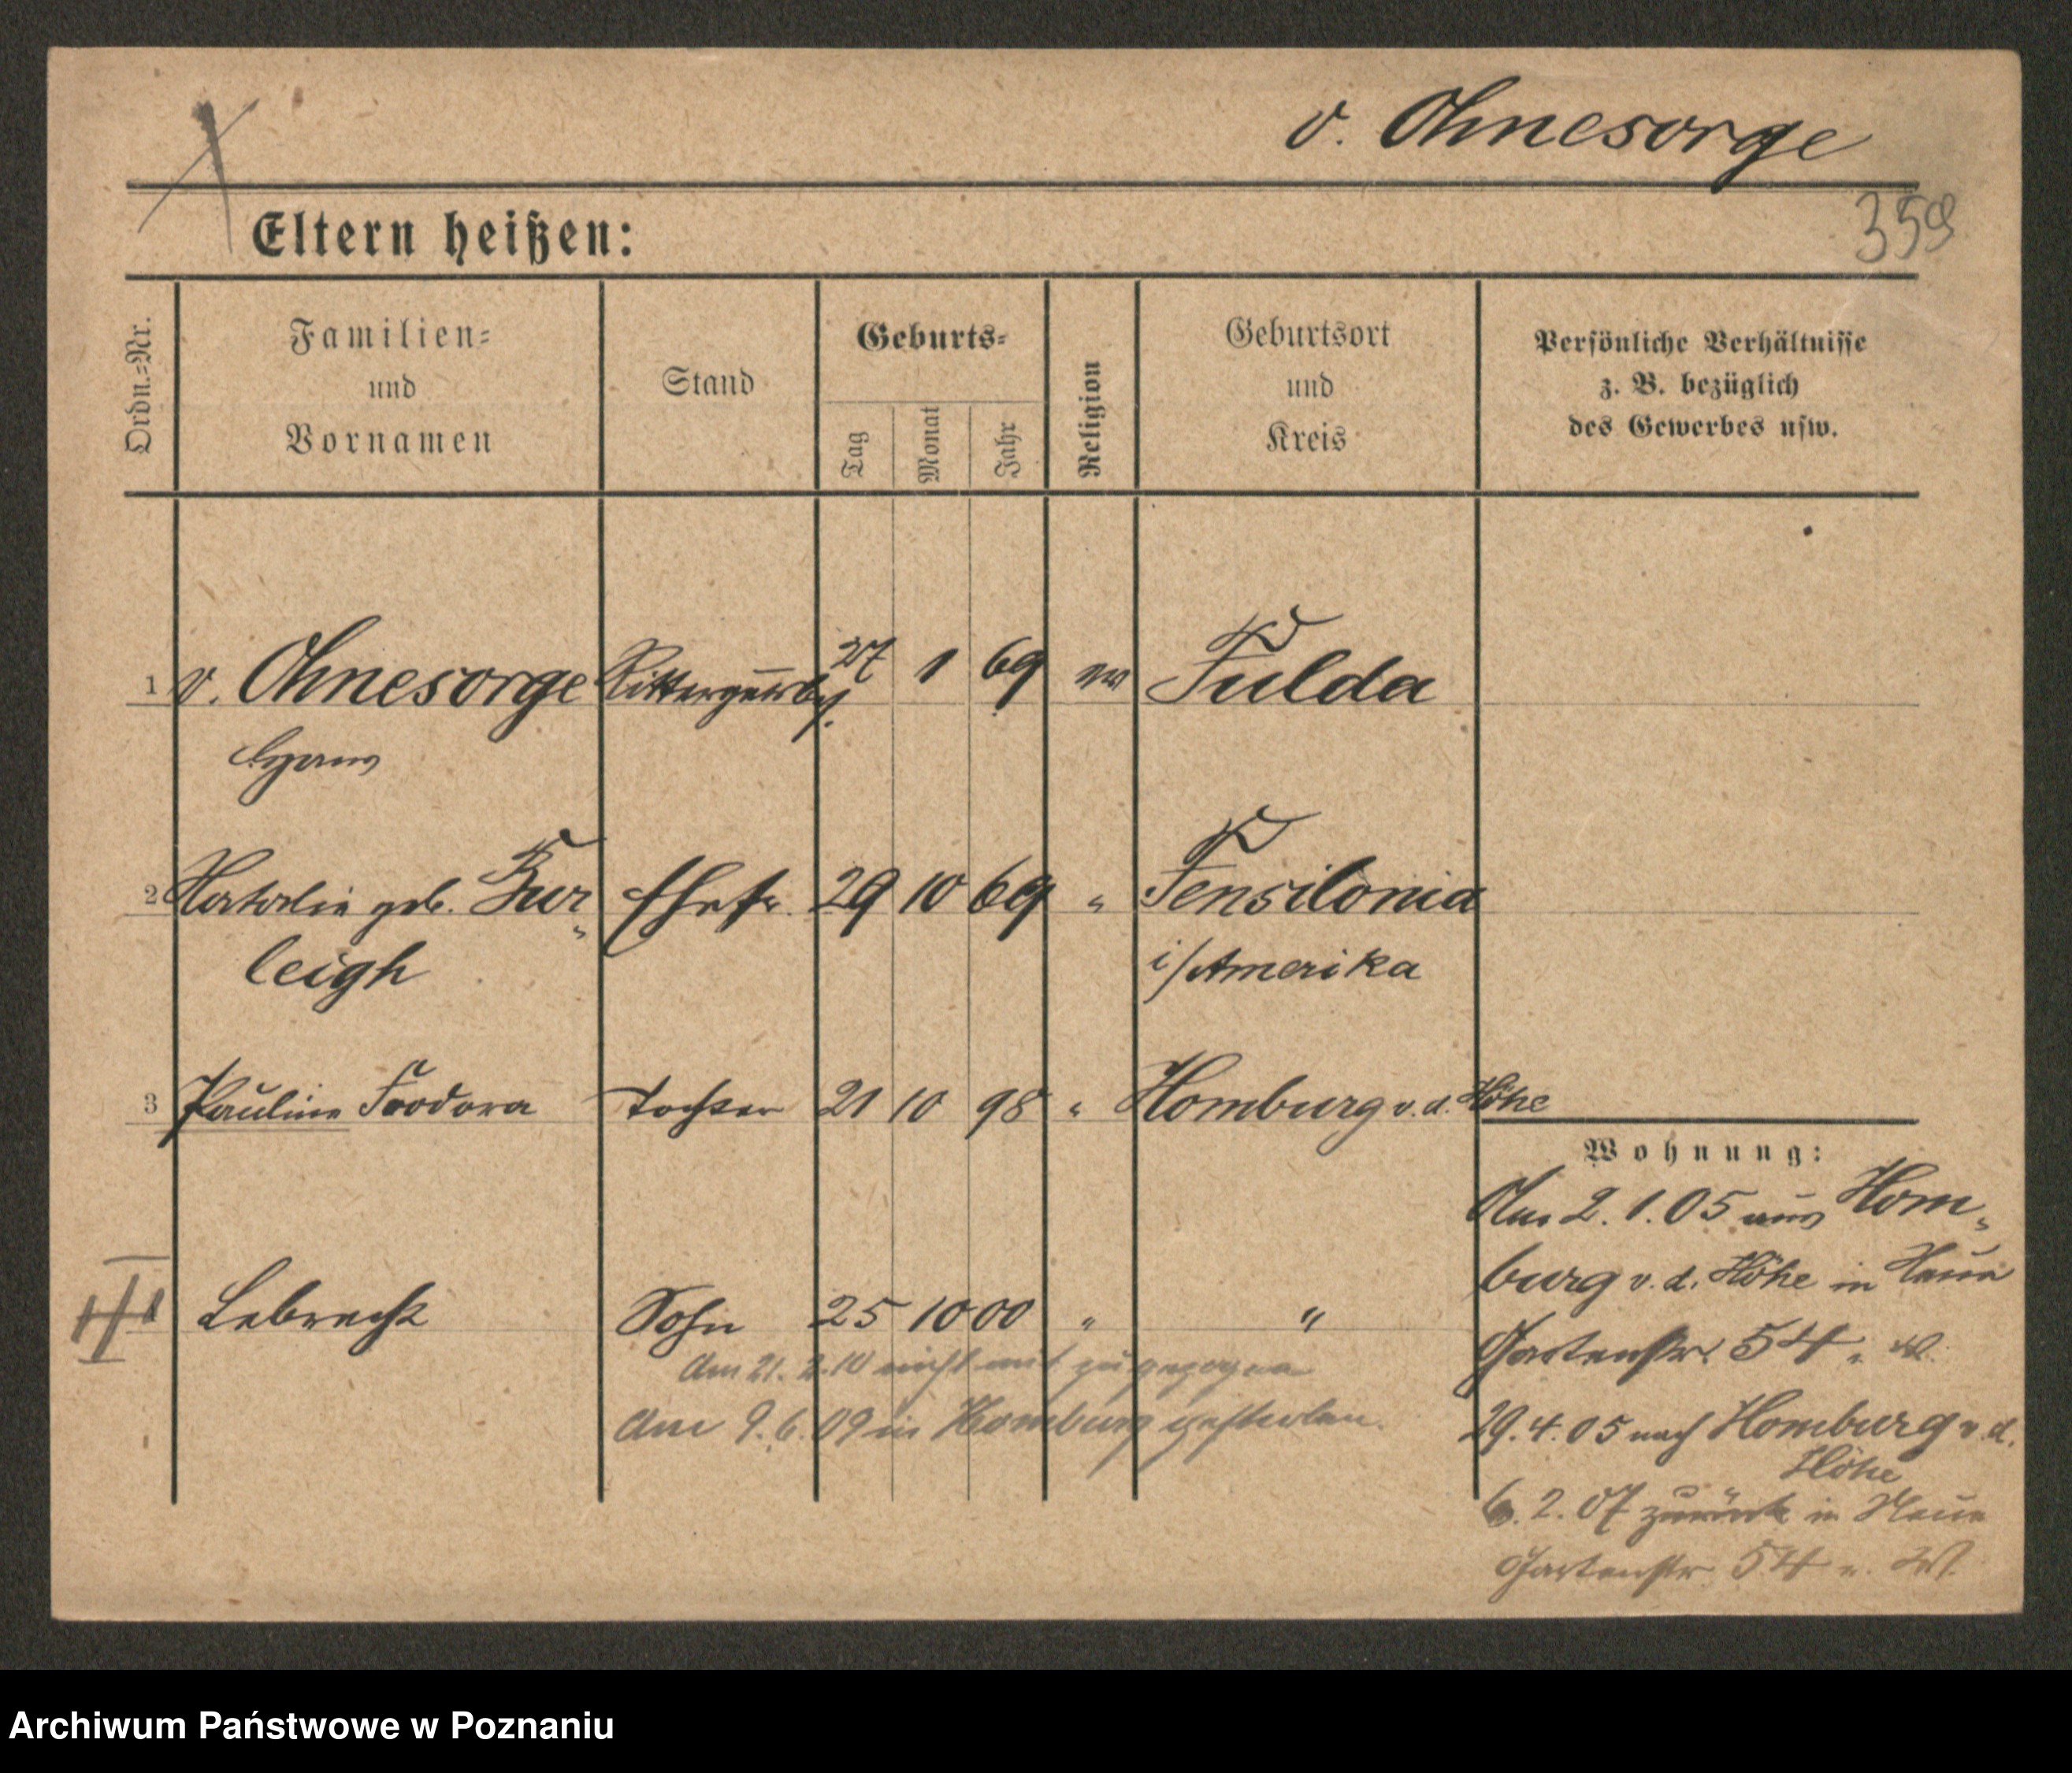 v. Ohnesorge
359
Eltern heißen:
Ordn.-Nr.
Familien-
und
Vornamen
Stand
Geburts-
Tag
Monat
Jahr
Religion
Geburtsort
und
Kreis
Persönliche Verhältnisse
z. B. bezüglich
des Gewerbes usw.
1 v. Ohnesorge Rittergutsbes. 27 1 69 ev Fulda
Hans
2 geb. Bur- Ehefr. 29 10 69 " Pensilonia
leigh i/Amerika
3 Pauline Feodora Tochter 21 10 98 " Homburg v. d. Höhe
Lebrecht Sohn 25 10 00 " "
Am 21. 2. 10 nicht mit zugezogen
Am 9. 6. 09 in Homburg gestorben.
Wohnung:
Am 2. 1. 05 aus Hom-
burg v. d. Höhe in Neue
Gartenstr. 54.
29. 4. 05 nach Homburg v. d.
Höhe
6. 2. 07 zurück in Neue
Gartenstr. 54
Archiwum Państwowe w Poznaniu